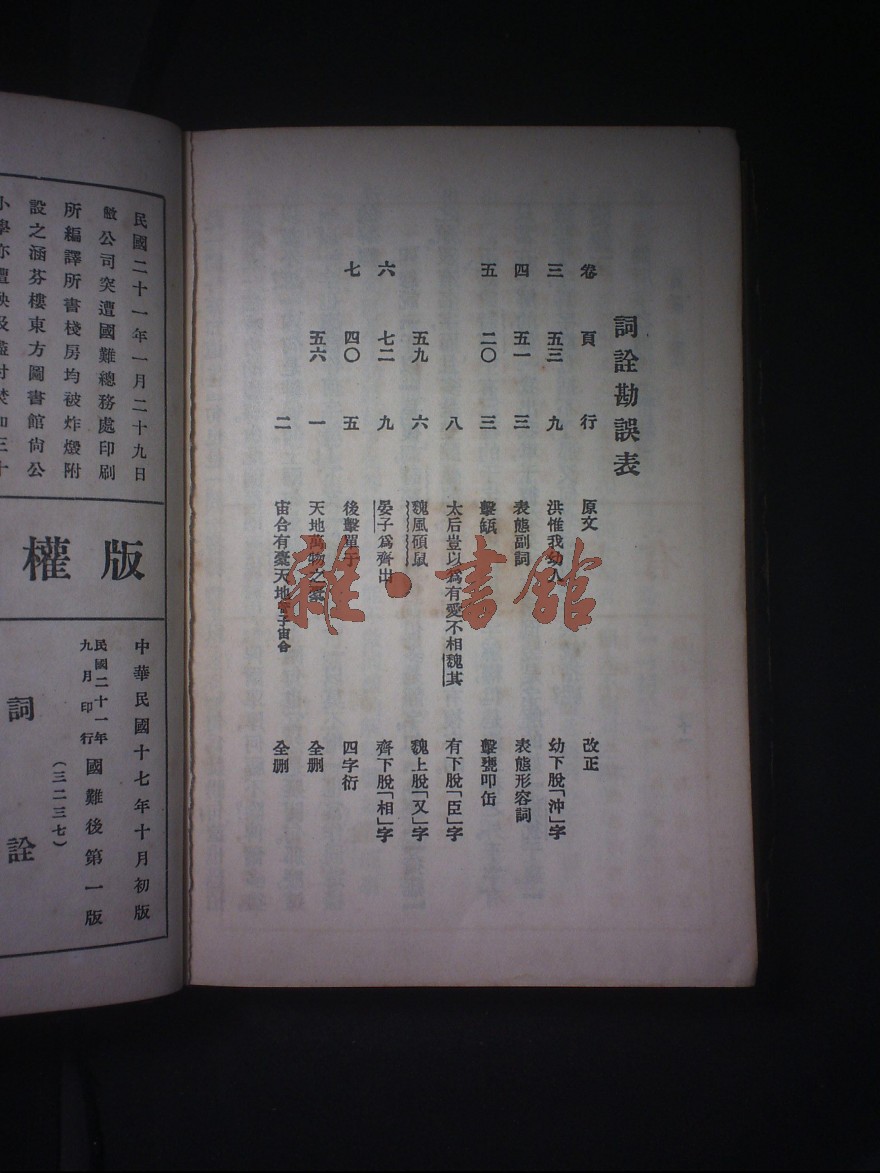 詞詮勘誤表
卷 頁 行 原文 改正
三 五三 九 洪惟我幼人 幼下脫「沖」字
四 五一 三 表態副詞 表態形容詞
五 二〇 三 擊缻 擊甕叩缶
八 太后豈以爲有愛不相魏其 有下脫「臣」字
五九 六 魏風碩鼠 魏上脫「又」字
六 七二 九 晏子爲齊出 齊下脫「相」字
七 四〇 五 後擊單于 四字衍
五六 一 天地萬物之橐 全刪
二 宙合有橐天地管子宙合 全刪
民國二十一年一月二十九日
敝公司突遭國難總務處印刷
所編譯所書棧房均被炸燬附
設之涵芬樓東方圖書館尙公
小學亦遭殃及盡付焚如三十
版權
中華民國十七年十月初版
民國二十一年九月印行國難後第一版
(三二三七)
詞詮
雜·書館